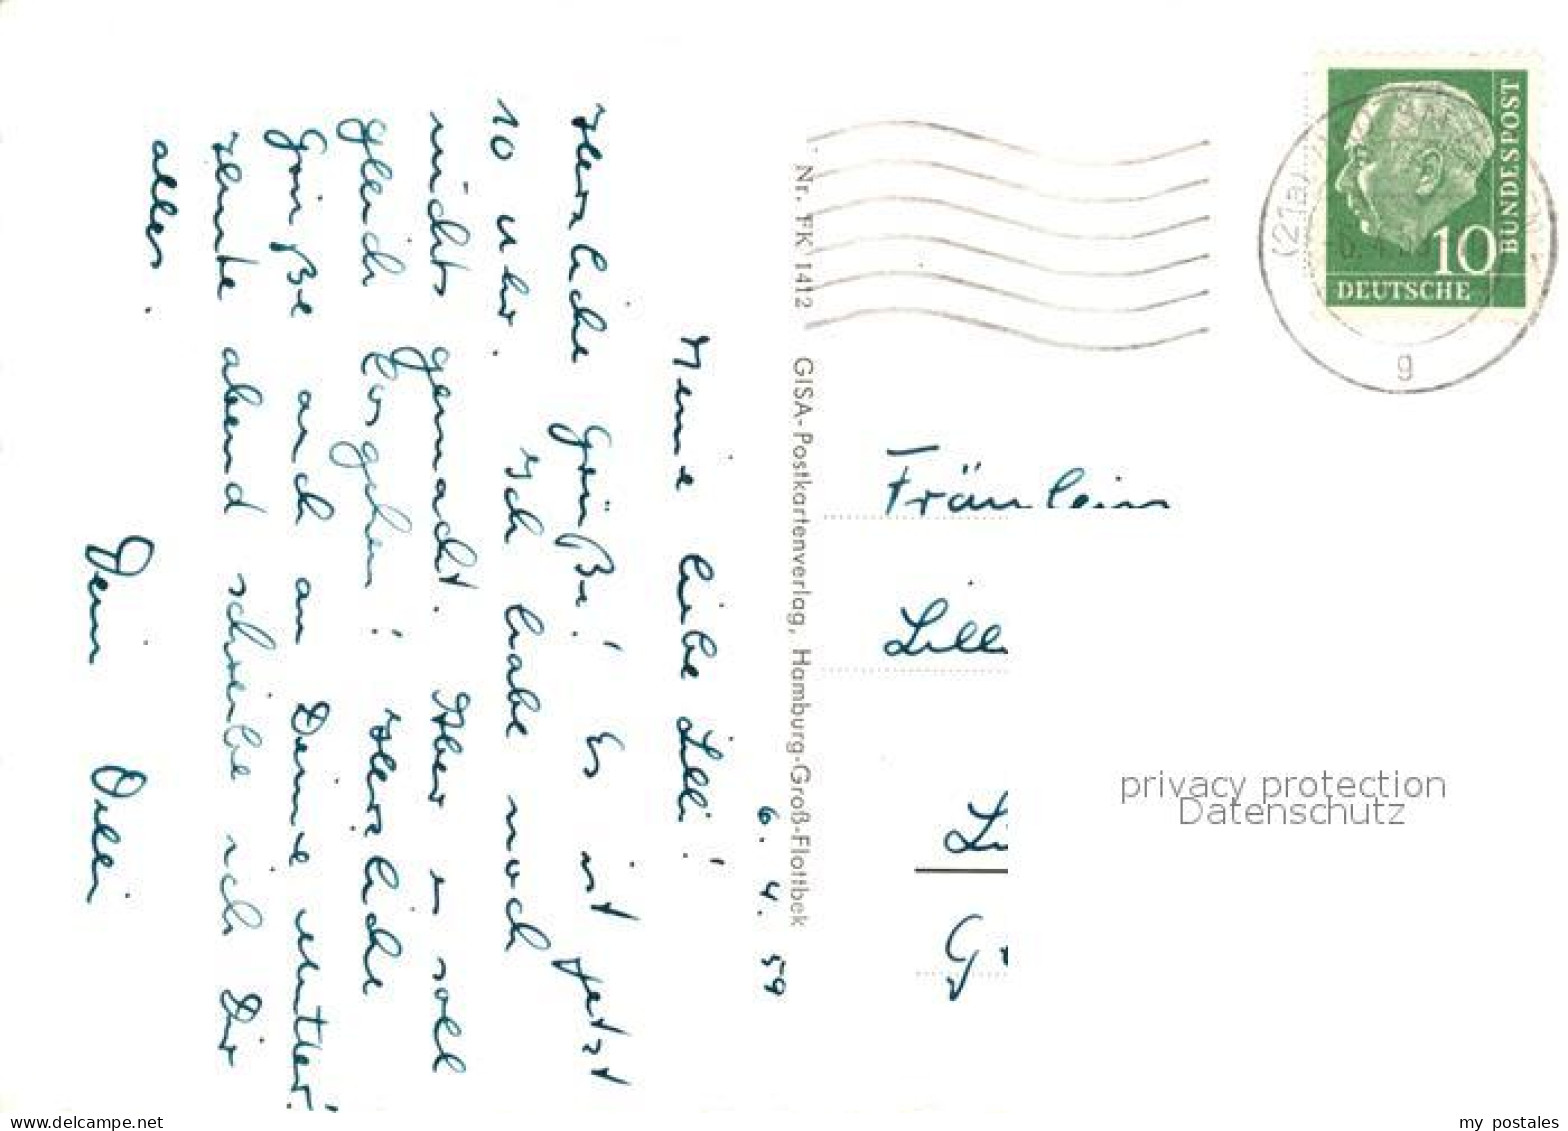 6. 4. 59
Meine liebe Lilli!
Herzliche Grüße! Es ist jetzt
10 Uhr. Ich habe noch
nichts gemacht. Aber es soll
gleich losgehen! Herzliche
Grüße auch an Deine Mutter!
Heute abend schreibe ich Dir
alles.
Dein Willi
Nr. FK 1412 GISA-Postkartenverlag, Hamburg-Groß-Flottbek
BUNDESPOST
10
DEUTSCHE
(21a)
g
Fräulein
Lill
privacy protection
Datenschutz
Li
G
www.delcampe.net
my_postales